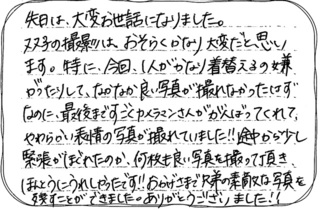 先日は、大変お世話になりました。
双子の撮影は、おそらくかなり大変だと思い
ます。特に、今回、1人がかなり着替えるの嫌
がったりして、なかなか良い写真が撮れなかったはず
なのに、最後まですごくカメラマンさんががんばってくれて、
やわらかい表情の写真が撮れていました!!途中から少し
緊張がほぐれたのか、何枚も良い写真を撮って頂き、
ほんとうにうれしかったです!!おかげさまで兄弟の素敵な写真を
残すことができました。ありがとうございました!!